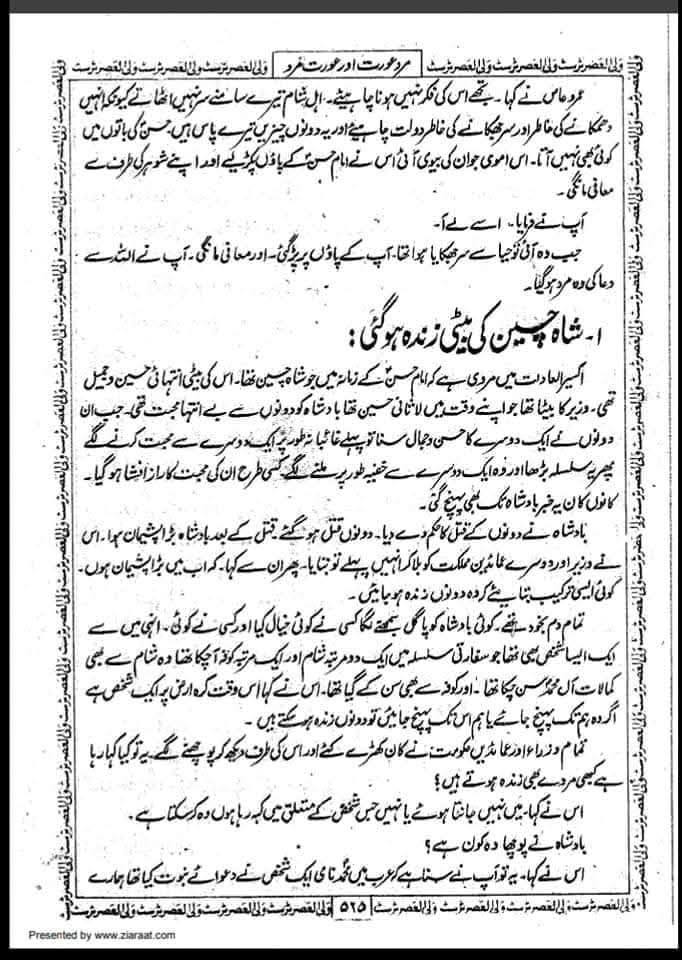 مرد عورت اور عورت مرد
عمرو عاص نے کہا۔ تجھے اس کی فکر نہیں ہونا چاہیئے۔ اہل شام تیرے سامنے سر نہیں اٹھاتے کیونکہ انہیں
دھمکانے کی خاطر اور سر جھکانے کی خاطر دولت چاہیئے اور یہ دونوں چیزیں تیرے پاس ہیں۔ حسنؑ کی باتوں میں
کوئی بھی نہیں آتا۔ اس اموی جوان کی بیوی آئی اس نے امام حسنؑ کے پاؤں پکڑیے اور اپنے شوہر کی طرف سے
معافی مانگی۔
آپ نے فرمایا۔ اسے لے آ۔
جب وہ آئی تو حیا سے سر جھکایا ہوا تھا۔ آپ کے پاؤں پر پڑ گئی۔ اور معافی مانگی۔ آپ نے اللہ سے
دعا کی وہ مرد ہو گیا۔
۱۔ شاہ چین کی بیٹی زندہ ہو گئی :
اکسیر العبادات میں مروی ہے کہ امام حسنؑ کے زمانہ میں جو شاہ چین تھا۔ اس کی بیٹی انتہائی حسین و جمیل
تھی۔ وزیر کا بیٹا تھا جو اپنے وقت میں لاثانی حسین تھا بادشاہ کو دونوں سے بے انتہا محبت تھی۔ جب ان
دونوں نے ایک دوسرے کا حسن و جمال سنا تو پہلے غائبانہ طور پر ایک دوسرے سے محبت کرنے لگے
پھر یہ سلسلہ بڑھا اور وہ ایک دوسرے سے خفیہ طور پر ملنے لگے۔ کسی طرح ان کی محبت کا راز افشا ہو گیا۔
کانوں کان یہ خبر بادشاہ تک بھی پہنچ گئی۔
بادشاہ نے دونوں کے قتل کا حکم دے دیا۔ دونوں قتل ہو گئے۔ قتل کے بعد بادشاہ بڑا پشیمان ہوا۔ اس
نے وزیر اور دوسرے عمائدین مملکت کو بلا کر انہیں پہلے تو بتایا۔ پھر ان سے کہا۔ کہ اب میں بڑا پشیمان ہوں۔
کوئی ایسی ترکیب بتائیے کہ وہ دونوں زندہ ہو جائیں۔
تمام دم بخود تھے۔ کوئی بادشاہ کو پاگل سمجھنے لگا کسی نے کوئی خیال کیا اور کسی نے کوئی۔ انہی میں سے
ایک ایسا شخص بھی تھا جو سفارتی سلسلہ میں ایک دو مرتبہ شام اور ایک مرتبہ کوفہ آ چکا تھا وہ شام سے بھی
کمالات آل محمدؐ سن چکا تھا۔ اور کوفہ سے بھی سن کے گیا تھا۔ اس نے کہا اس وقت کرہ ارض پر ایک شخص ہے
اگر وہ ہم تک پہنچ جائے یا ہم اس تک پہنچ جائیں تو دونوں زندہ ہو سکتے ہیں۔
تمام وزراء اور عمائدین حکومت نے کان کھڑے کئے اور اس کی طرف دیکھ کر پوچھنے لگے۔ یہ تو کیا کہہ رہا
ہے کبھی مردے بھی زندہ ہوتے ہیں؟
اس نے کہا۔ میں نہیں جانتا ہوتے یا نہیں جس شخص کے متعلق میں کہہ رہا ہوں وہ کر سکتا ہے۔
بادشاہ نے پوچھا وہ کون ہے؟
اس نے کہا۔ یہ تو آپ نے سنا ہے کہ عرب میں محمدؐ نامی ایک شخص نے دعوائے نبوت کیا تھا ہمارے
۵۲۵
ولی العصر ٹرسٹ
Presented by www.ziaraat.com